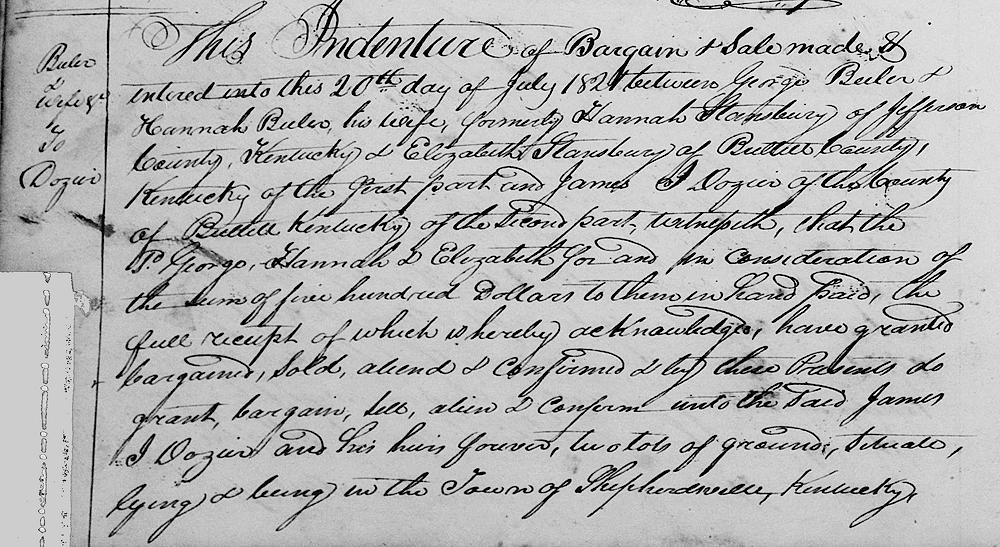 Buler
&
wife &c
To
Dozier
This Indenture of Bargain & Sale made &
entered into this 20th day of July 1821 between George Buler &
Hannah Buler, his wife, formerly Hannah Stansbury of Jefferson
County, Kentucky & Elizabeth Stansbury of Bullitt County,
Kentucky of the first part and James I Dozier of the County
of Bullitt Kentucky of the second part, witnesseth, that the
sd. George, Hannah & Elizabeth for and in consideration of
the sum of five hundred Dollars to them in hand paid, the
full receipt of which is hereby acknowledged, have granted
bargained, sold, aliend & Confirmed & by these Presents do
grant, bargain, sell, alien & Confirm unto the said James
I Dozier and his heirs forever, two lots of ground, situate,
lying & being in the Town of Shepherdsville, Kentucky,